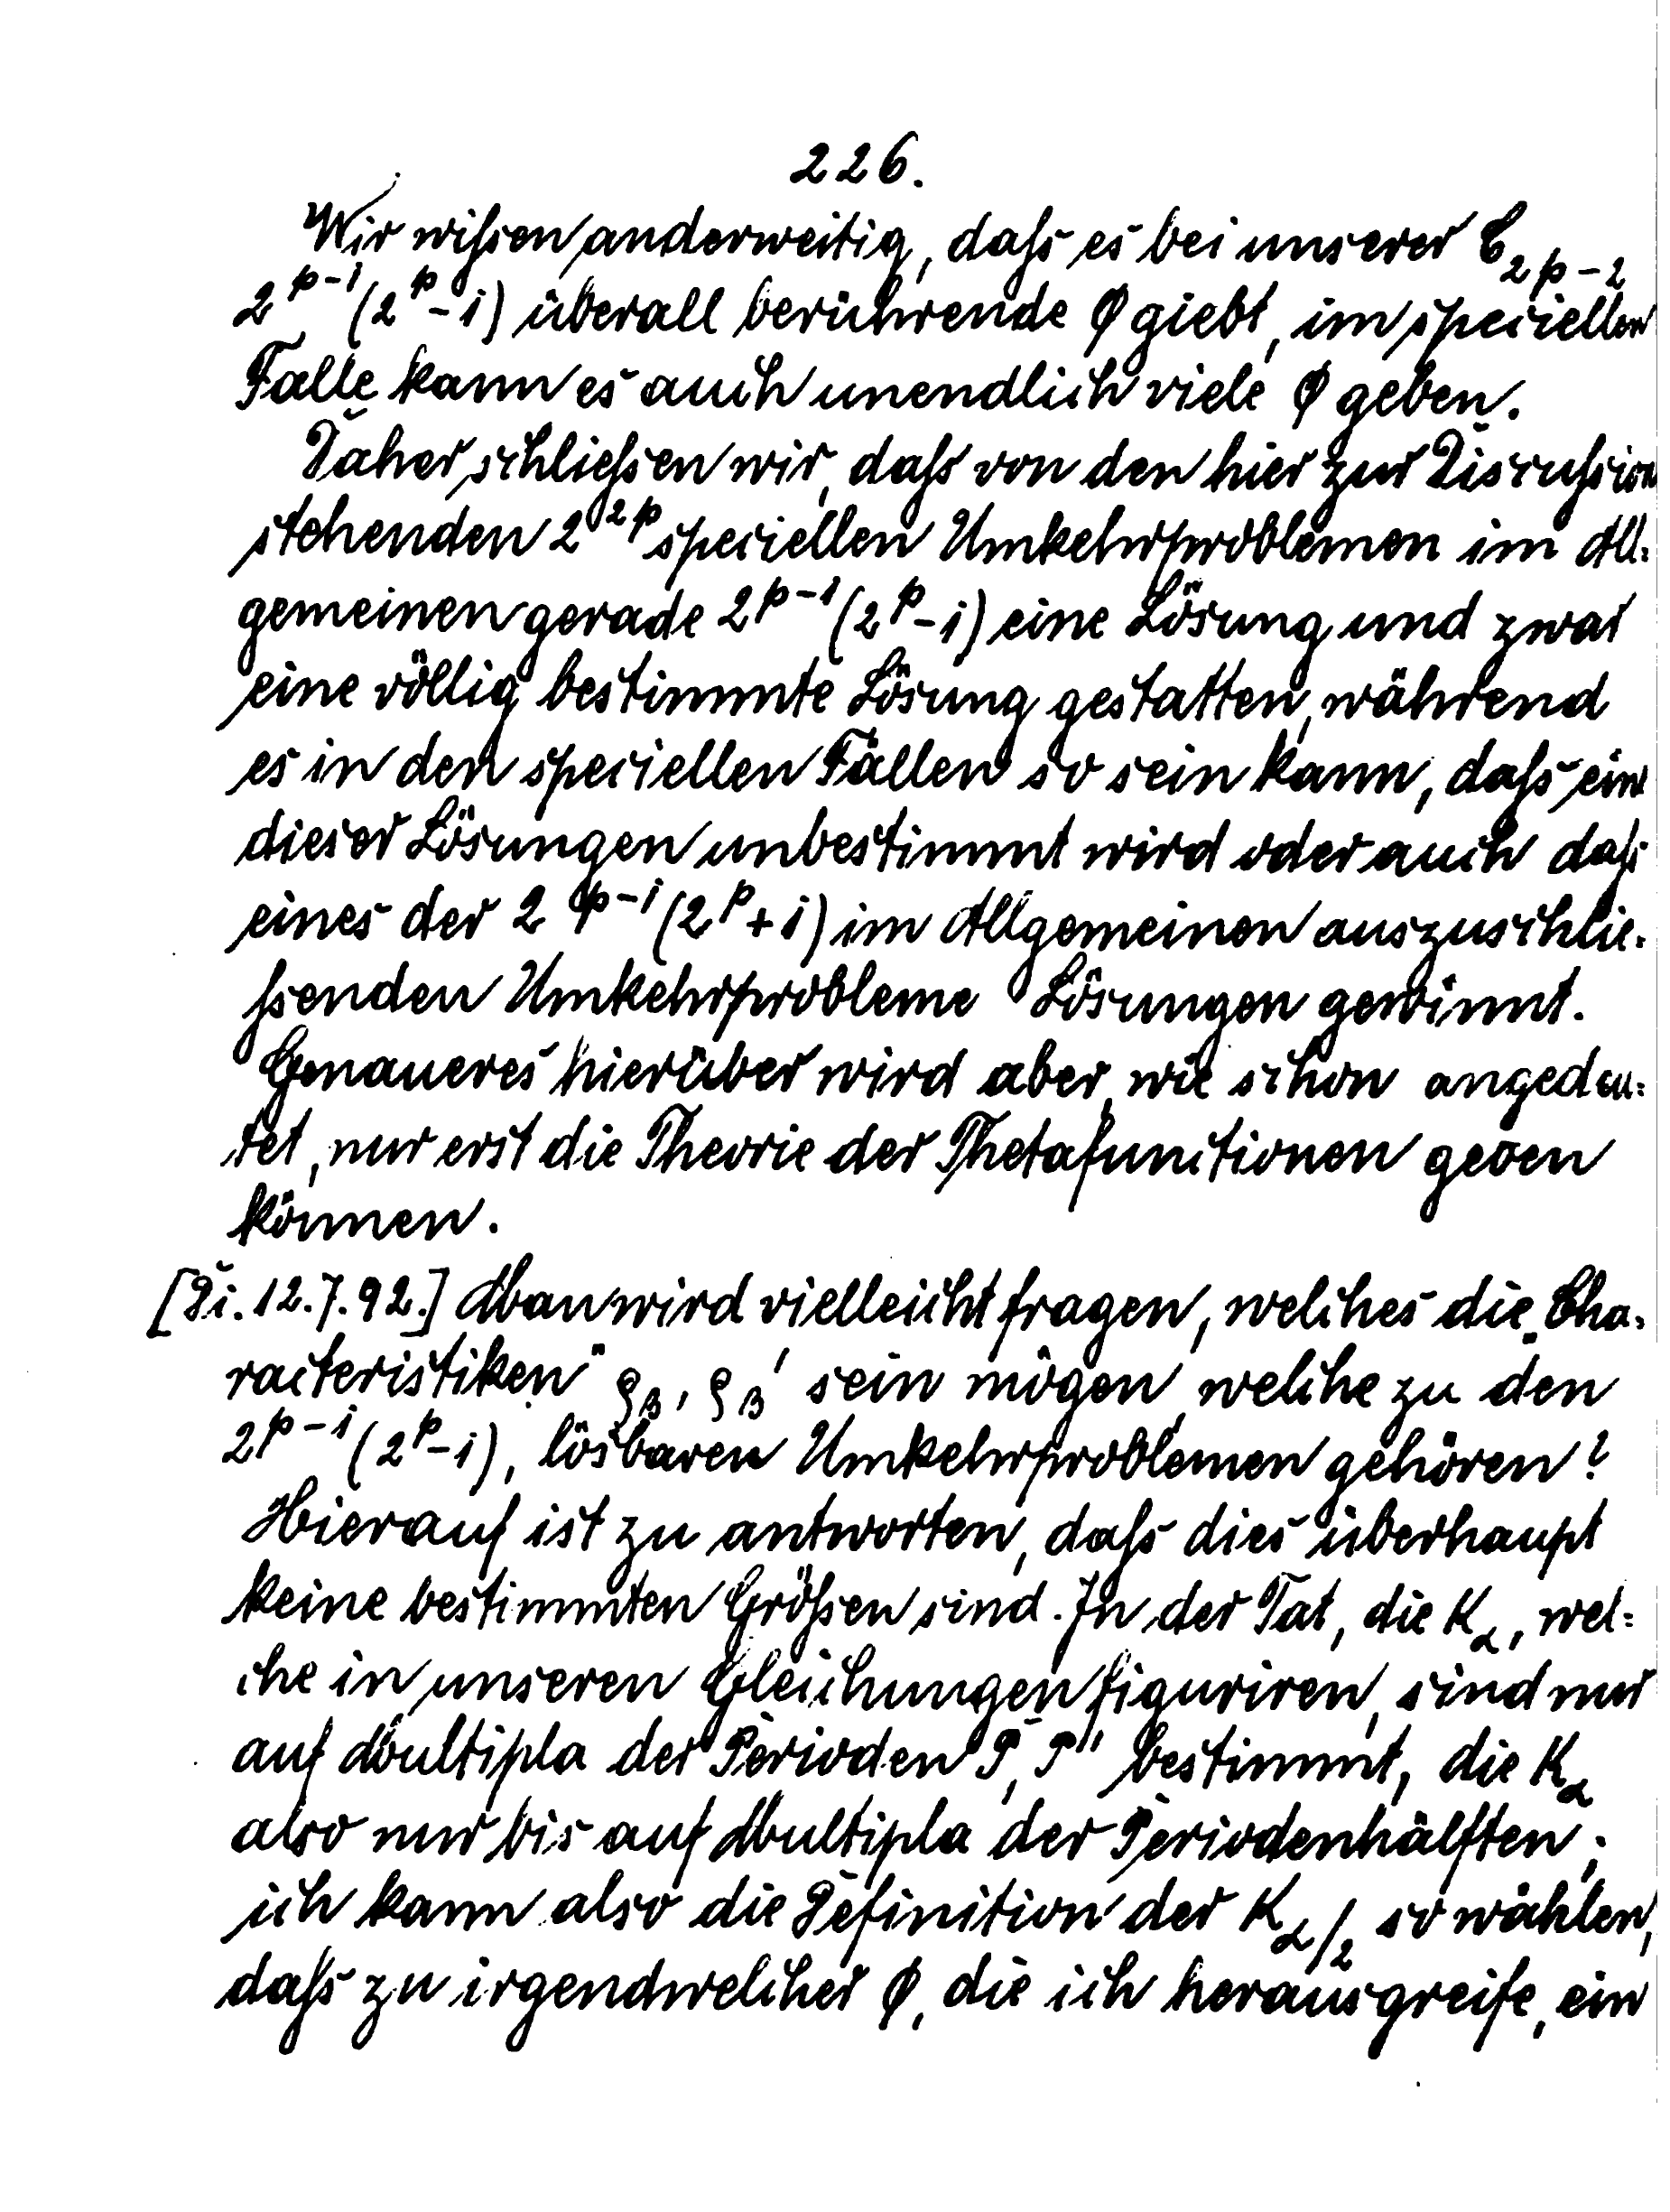 226.
Wir wissen anderweitig, dass es bei unserer C_{2p-2}
2^{p-1}(2^p-1) überall berührende φ giebt, im speciellen
Falle kann es auch unendlich viele φ geben.
Daher schliessen wir, dass von den hier zur Discussion
stehenden 2^{2p} speciellen Umkehrproblemen im All=
gemeinen gerade 2^{p-1}(2^p-1) eine Lösung und zwar
eine völlig bestimmte Lösung gestatten, während
es in den speciellen Fällen so sein kann, dass ein
dieser Lösungen unbestimmt wird oder auch dass
eines der 2^{p-1}(2^p+1) im Allgemeinen auszuschlie=
ssenden Umkehrprobleme Lösungen gewinnt.
Genaueres hierüber wird aber, wie schon angedeu=
tet, nur erst die Theorie der Thetafunctionen geben
können.
[Di. 12.7.92.] Man wird vielleicht fragen, welches die „Cha=
racteristiken" ϱ_β, ϱ_β' sein mögen, welche zu den
2^{p-1}(2^p-1), lösbaren Umkehrproblemen gehören?
Hierauf ist zu antworten, dass dies überhaupt
keine bestimmten Grössen sind. In der Tat, die K_α, wel=
che in unseren Gleichungen figuriren, sind nur
auf Multipla der Perioden P, P" bestimmt, die K_α
also nur bis auf Multipla der Periodenhälften;
ich kann also die Definition der K_α/2 so wählen,
dass zu irgendwelcher φ, die ich herausgreife, ein